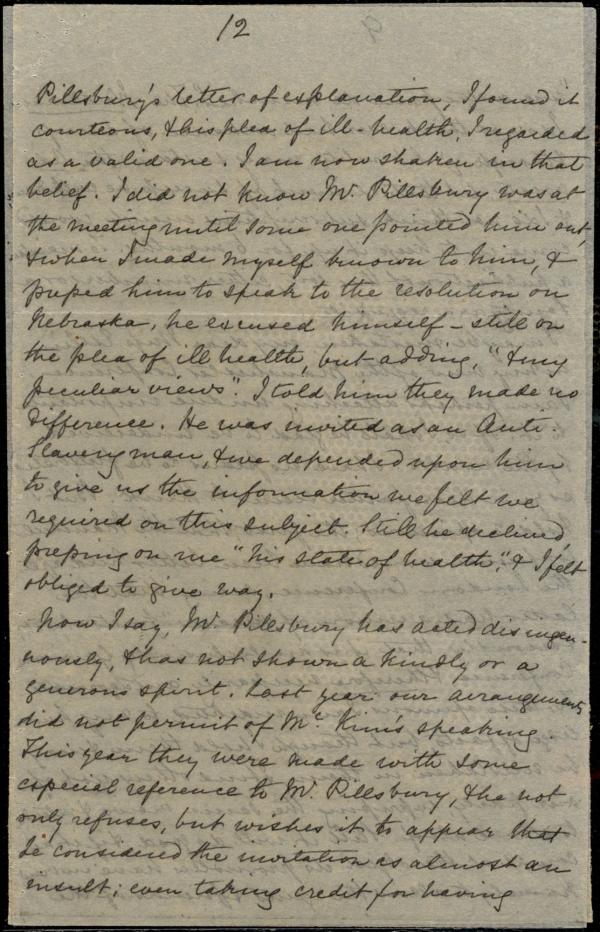 12
Pillsbury's letter of explanation, I found it
courteous, & his plea of ill-health, I regarded
as a valid one. I am now shaken in that
belief. I did not know Mr. Pillsbury was at
the meeting until some one pointed him out,
& when I made myself known to him, &
pressed him to speak to the resolution on
Nebraska, he excused himself - still on
the plea of ill health, but adding, "& my
peculiar views". I told him they made no
difference. He was invited as an Anti-
Slavery man, & we depended upon him
to give us the information we felt we
required on this subject. Still he declined,
pressing on me "his state of health", & I felt
obliged to give way.
Now I say, Mr. Pillsbury has acted disingen-
uously, & has not shown a kindly or a
generous spirit. Last year our arrangements
did not permit of Mc. Kim's speaking.
This year they were made with some
especial reference to Mr. Pillsbury, & he not
only refuses, but wishes it to appear that
he considered the invitation as almost an
insult; even taking credit for having